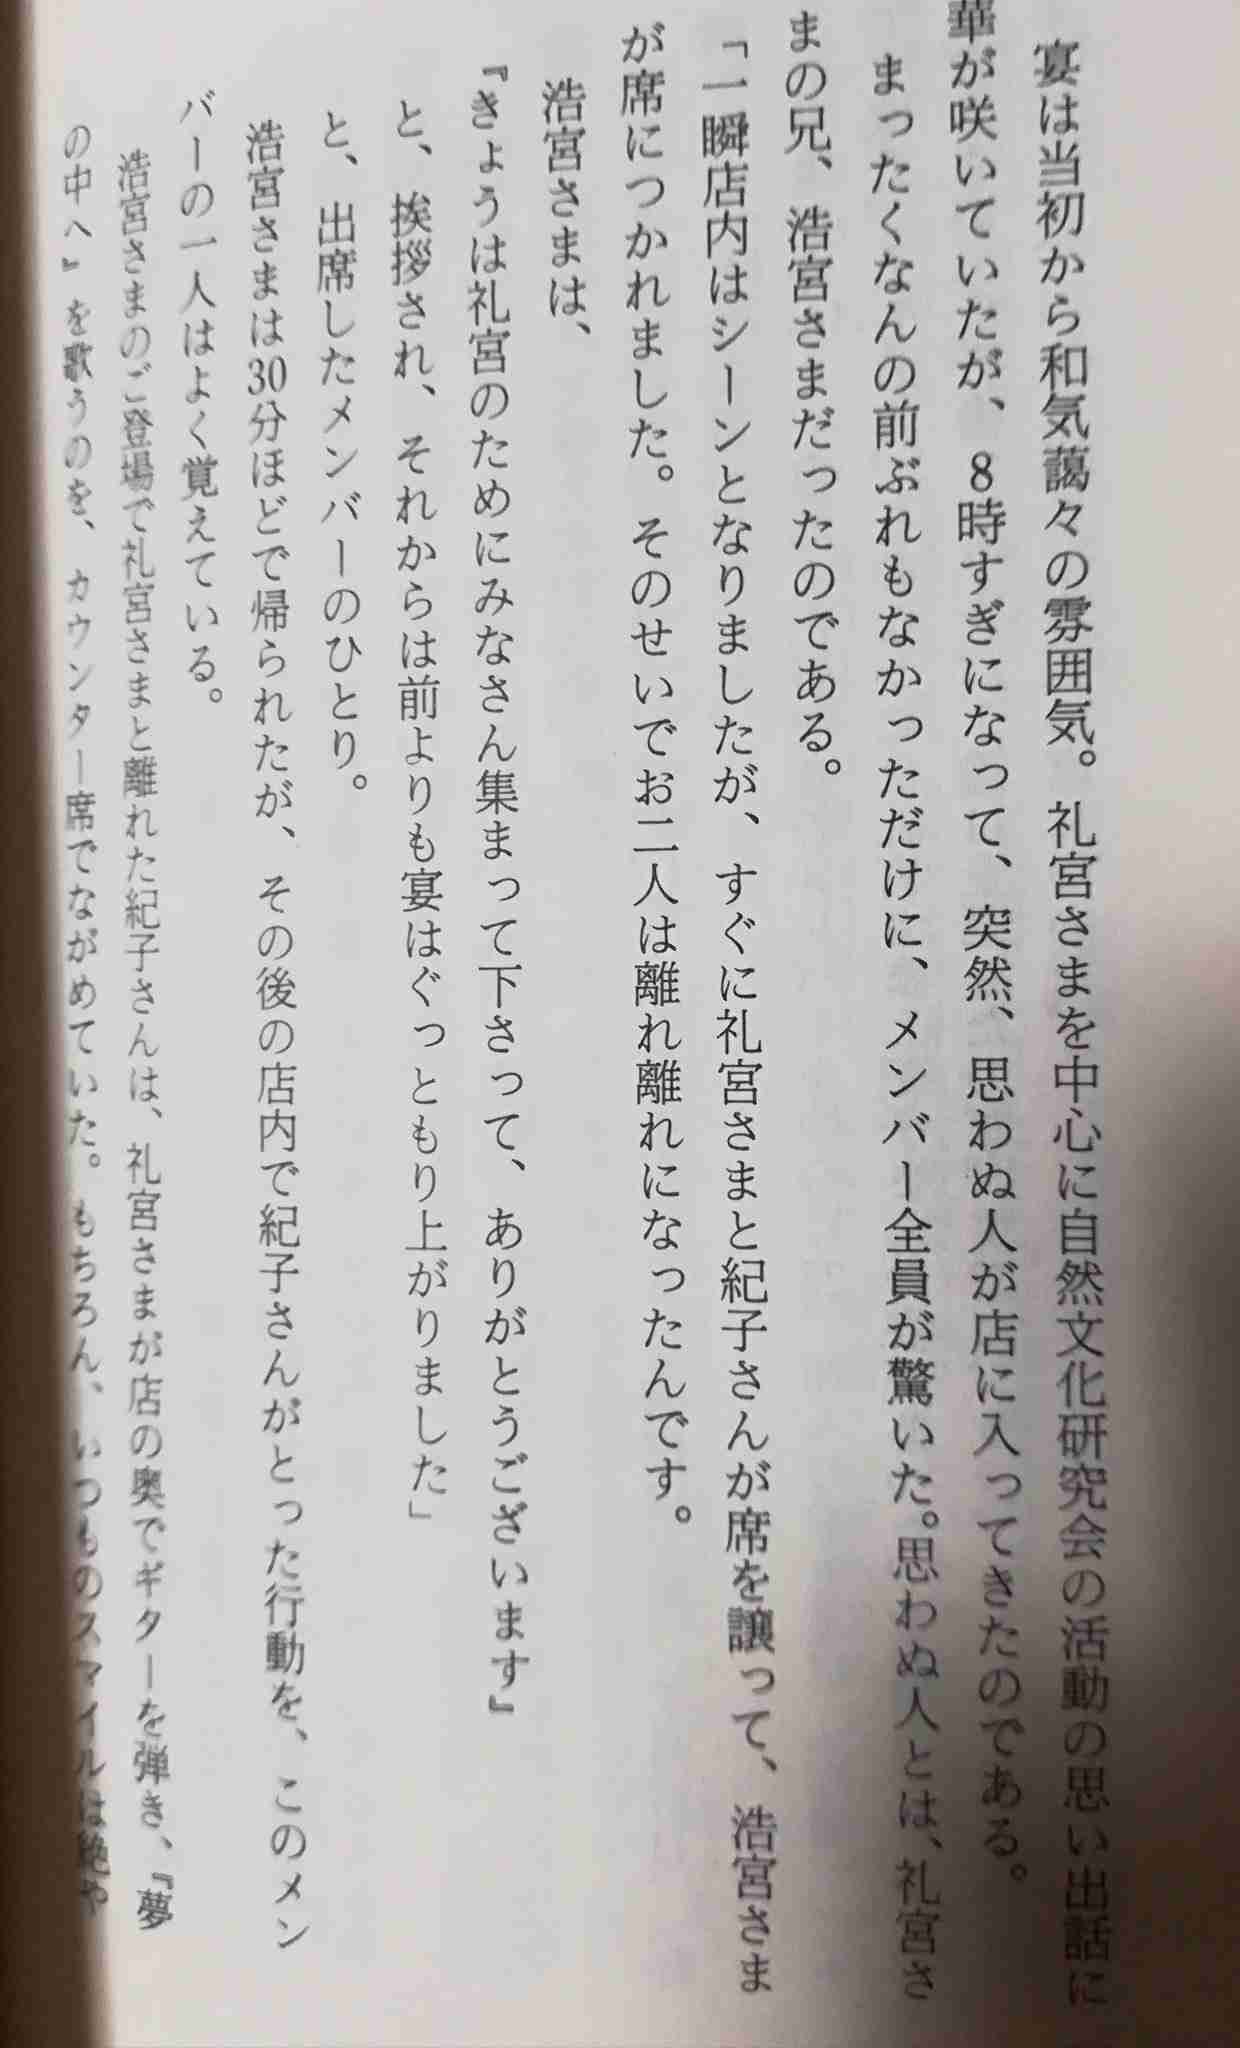 宴は当初から和気藹々の雰囲気。礼宮さまを中心に自然文化研究会の活動の思い出話に
華が咲いていたが、8時すぎになって、突然、思わぬ人が店に入ってきたのである。
まったくなんの前ぶれもなかっただけに、メンバー全員が驚いた。思わぬ人とは、礼宮さ
まの兄、浩宮さまだったのである。
「一瞬店内はシーンとなりましたが、すぐに礼宮さまと紀子さんが席を譲って、浩宮さま
が席につかれました。そのせいでお二人は離れ離れになったんです。
浩宮さまは、
『きょうは礼宮のためにみなさん集まって下さって、ありがとうございます』
と、挨拶され、それからは前よりも宴はぐっともり上がりました」
と、出席したメンバーのひとり。
浩宮さまは30分ほどで帰られたが、その後の店内で紀子さんがとった行動を、このメン
バーの一人はよく覚えている。
浩宮さまのご登場で礼宮さまと離れた紀子さんは、礼宮さまが店の奥でギターを弾き、『夢
の中へ』を歌うのを、カウンター席でながめていた。もちろん、いつものスマイルは絶や